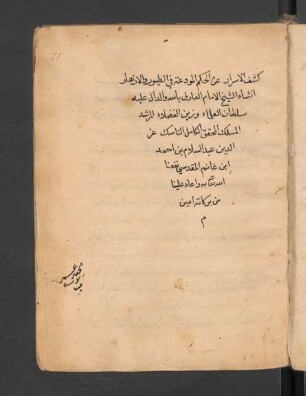 كشف الاسرار عن الحكم المودعة في الطيور والازهار
انشاء الشيخ الامام العارف بالله والدال عليه
سلطان العلماء وزين الفضلاء المرشد
المسلك المحقق الكامل الناسك عز
الدين عبد السلام بن احمد
ابن غانم المقدسي نفعنا
الله به واعاد علينا
من بركاته امين
م